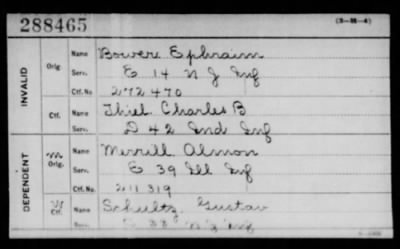 288465
(3-M-4)
INVALID
Orig. Name Bowers Ephraim
Serv. E 14 N J Inf
Ctf. No. 272470
Ctf. Name Thiel Charles B
Serv. D 42 Ind Inf
DEPENDENT
Orig. Name Merrill Almon
Serv. E 39 Ill Inf
Ctf. No. 211319
Ctf. Name Schultz Gustav
Serv. E